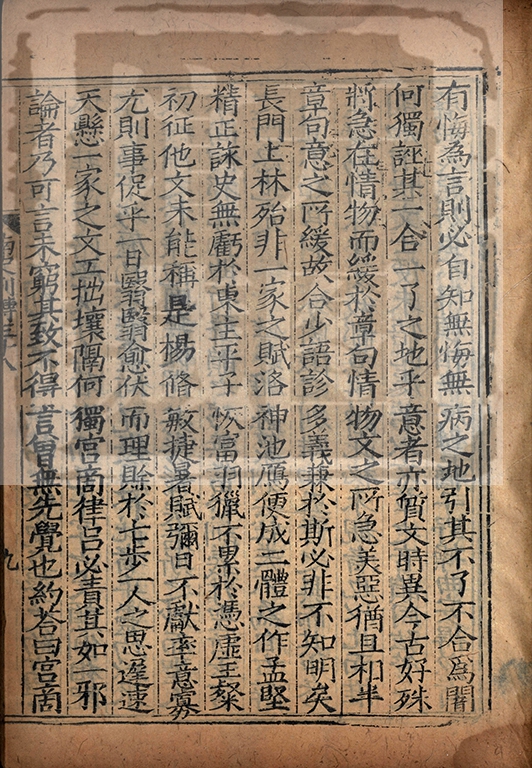 有悔為言則必自知無悔無病之地引其不了不合為闇
何獨誣其一合一了之地乎意者亦質文時異今古好殊
將急在情物而緩於章句情物文之所急美惡猶且相半
章句意之所緩故合少語診多義兼於斯必非不知明矣
長門上林殆非一家之賦洛神池鴈便成二體之作孟堅
精正詠史無虧於東主平子恢富羽獵不累於憑虛王粲
初征他文未能稱是楊脩敏捷暑賦彌日不獻率意寡
尤則事促乎一日翳翳愈伏而理賒於七步一人之思遲速
天懸一家之文工拙壤隔何獨宮商律呂必責其如一邪
論者乃可言未窮其致不得言曾無先覺也約荅曰宮商
九